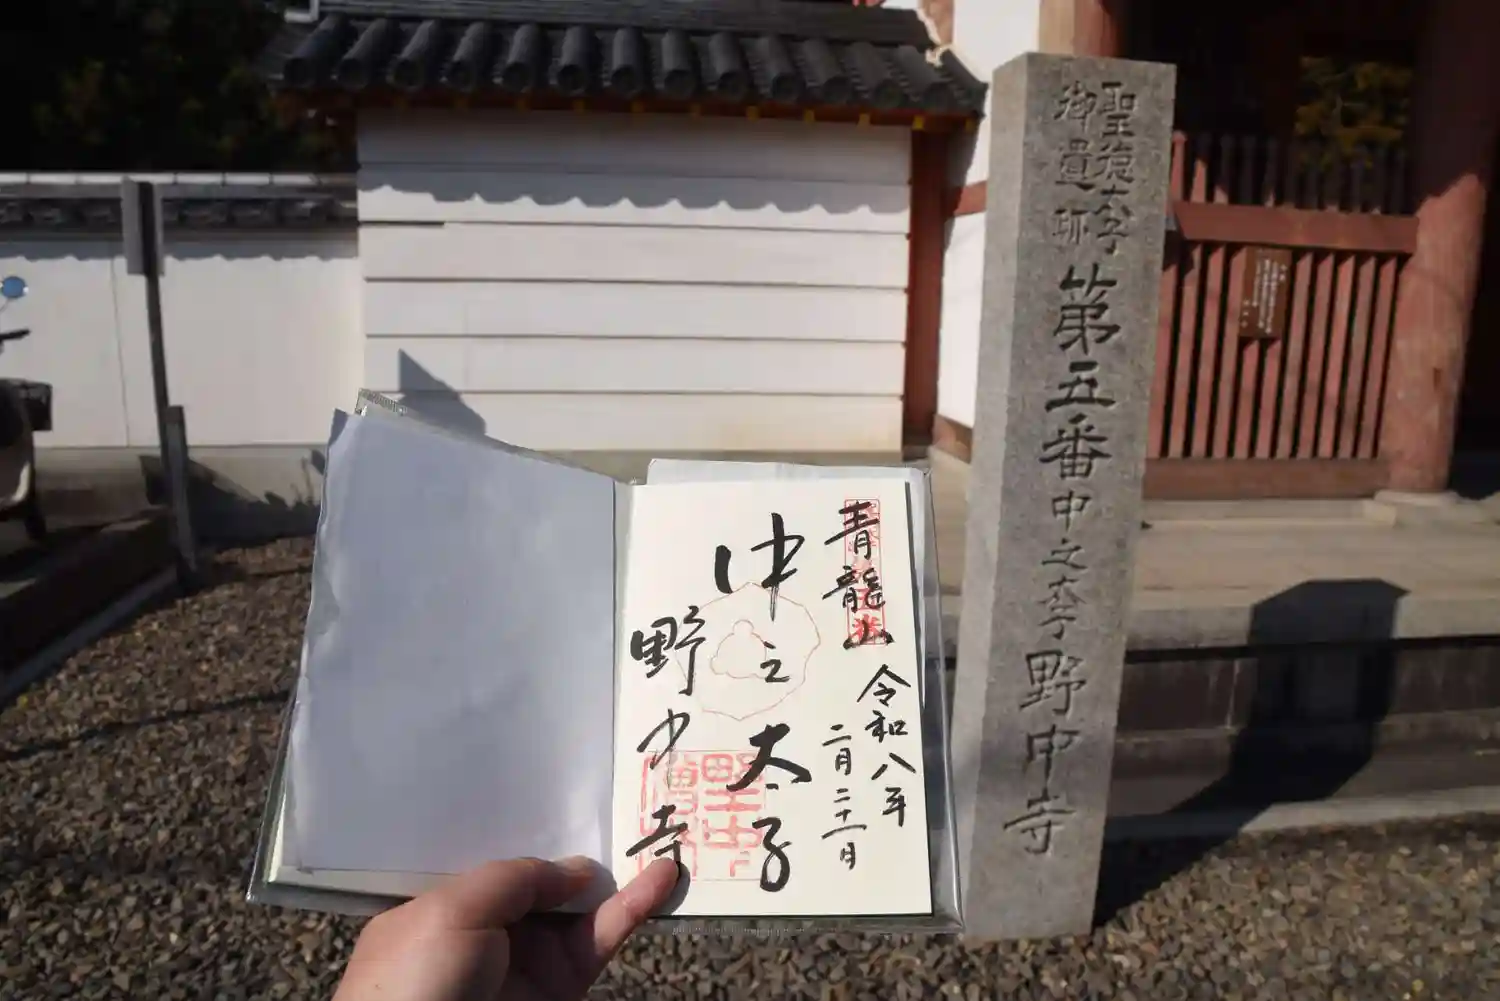 聖徳太子
御遺跡
第五番中之太子野中寺
青龍山
令和八年
二月二十一日
中之太子
野中寺